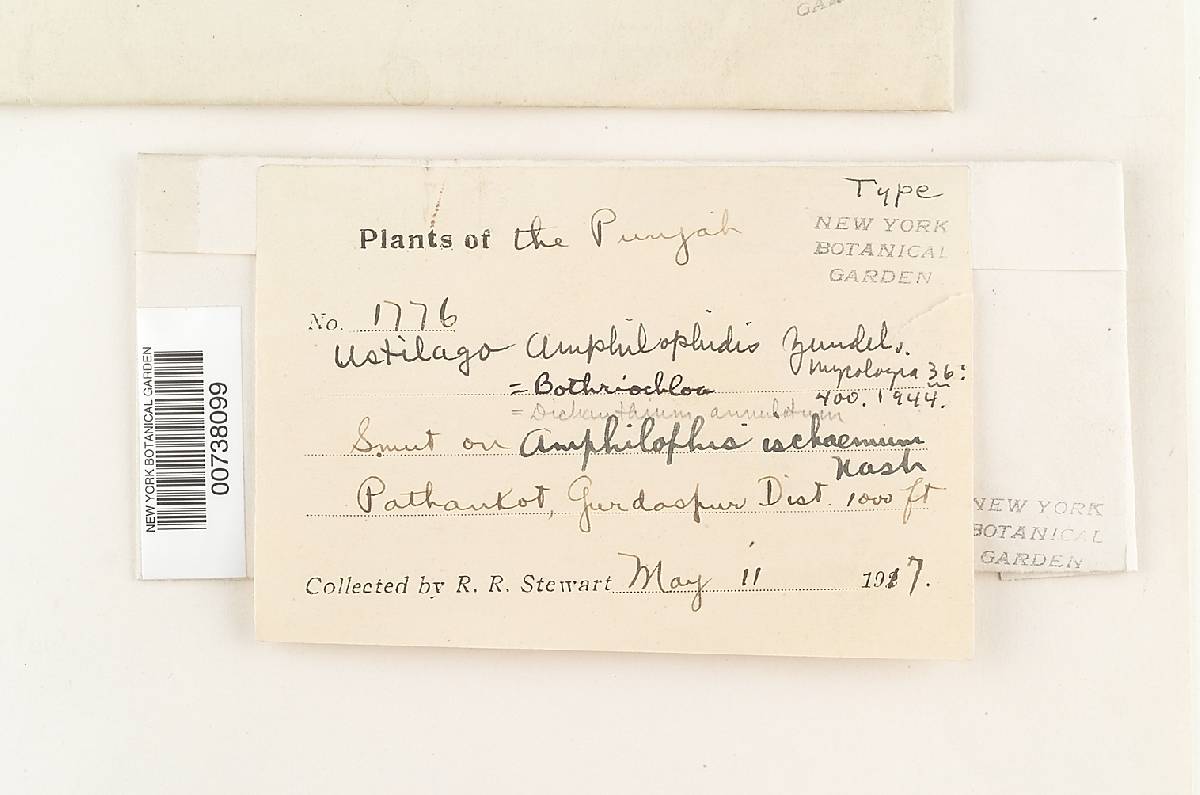 Type
NEW YORK
BOTANICAL
GARDEN
Plants of the Punjab
No. 1776
Ustilago Amphilophidis Zundel.
Mycologia 36:
400. 1944.
= Bothriochloa
= Dichanthium annulatum
Smut on Amphilophis ischaemum
Nash
Pathankot, Gurdaspur Dist. 1000 ft
Collected by R. R. Stewart May 11 1917.
NEW YORK BOTANICAL GARDEN
00738099
NEW YORK
BOTANICAL
GARDEN